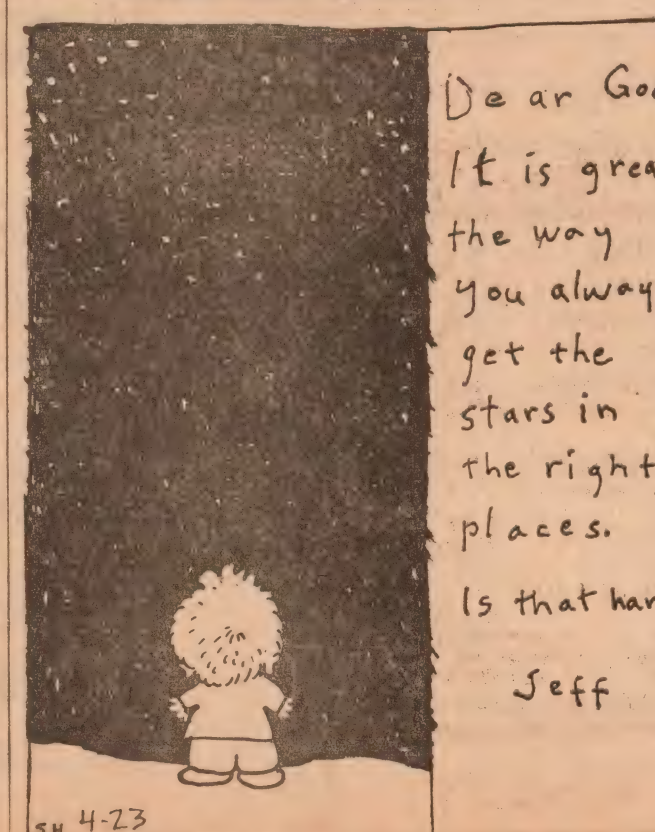 Dear Go
It is grea
the way
you alway
get the
stars in
the right
places.
Is that har
Jeff
SH 4-23